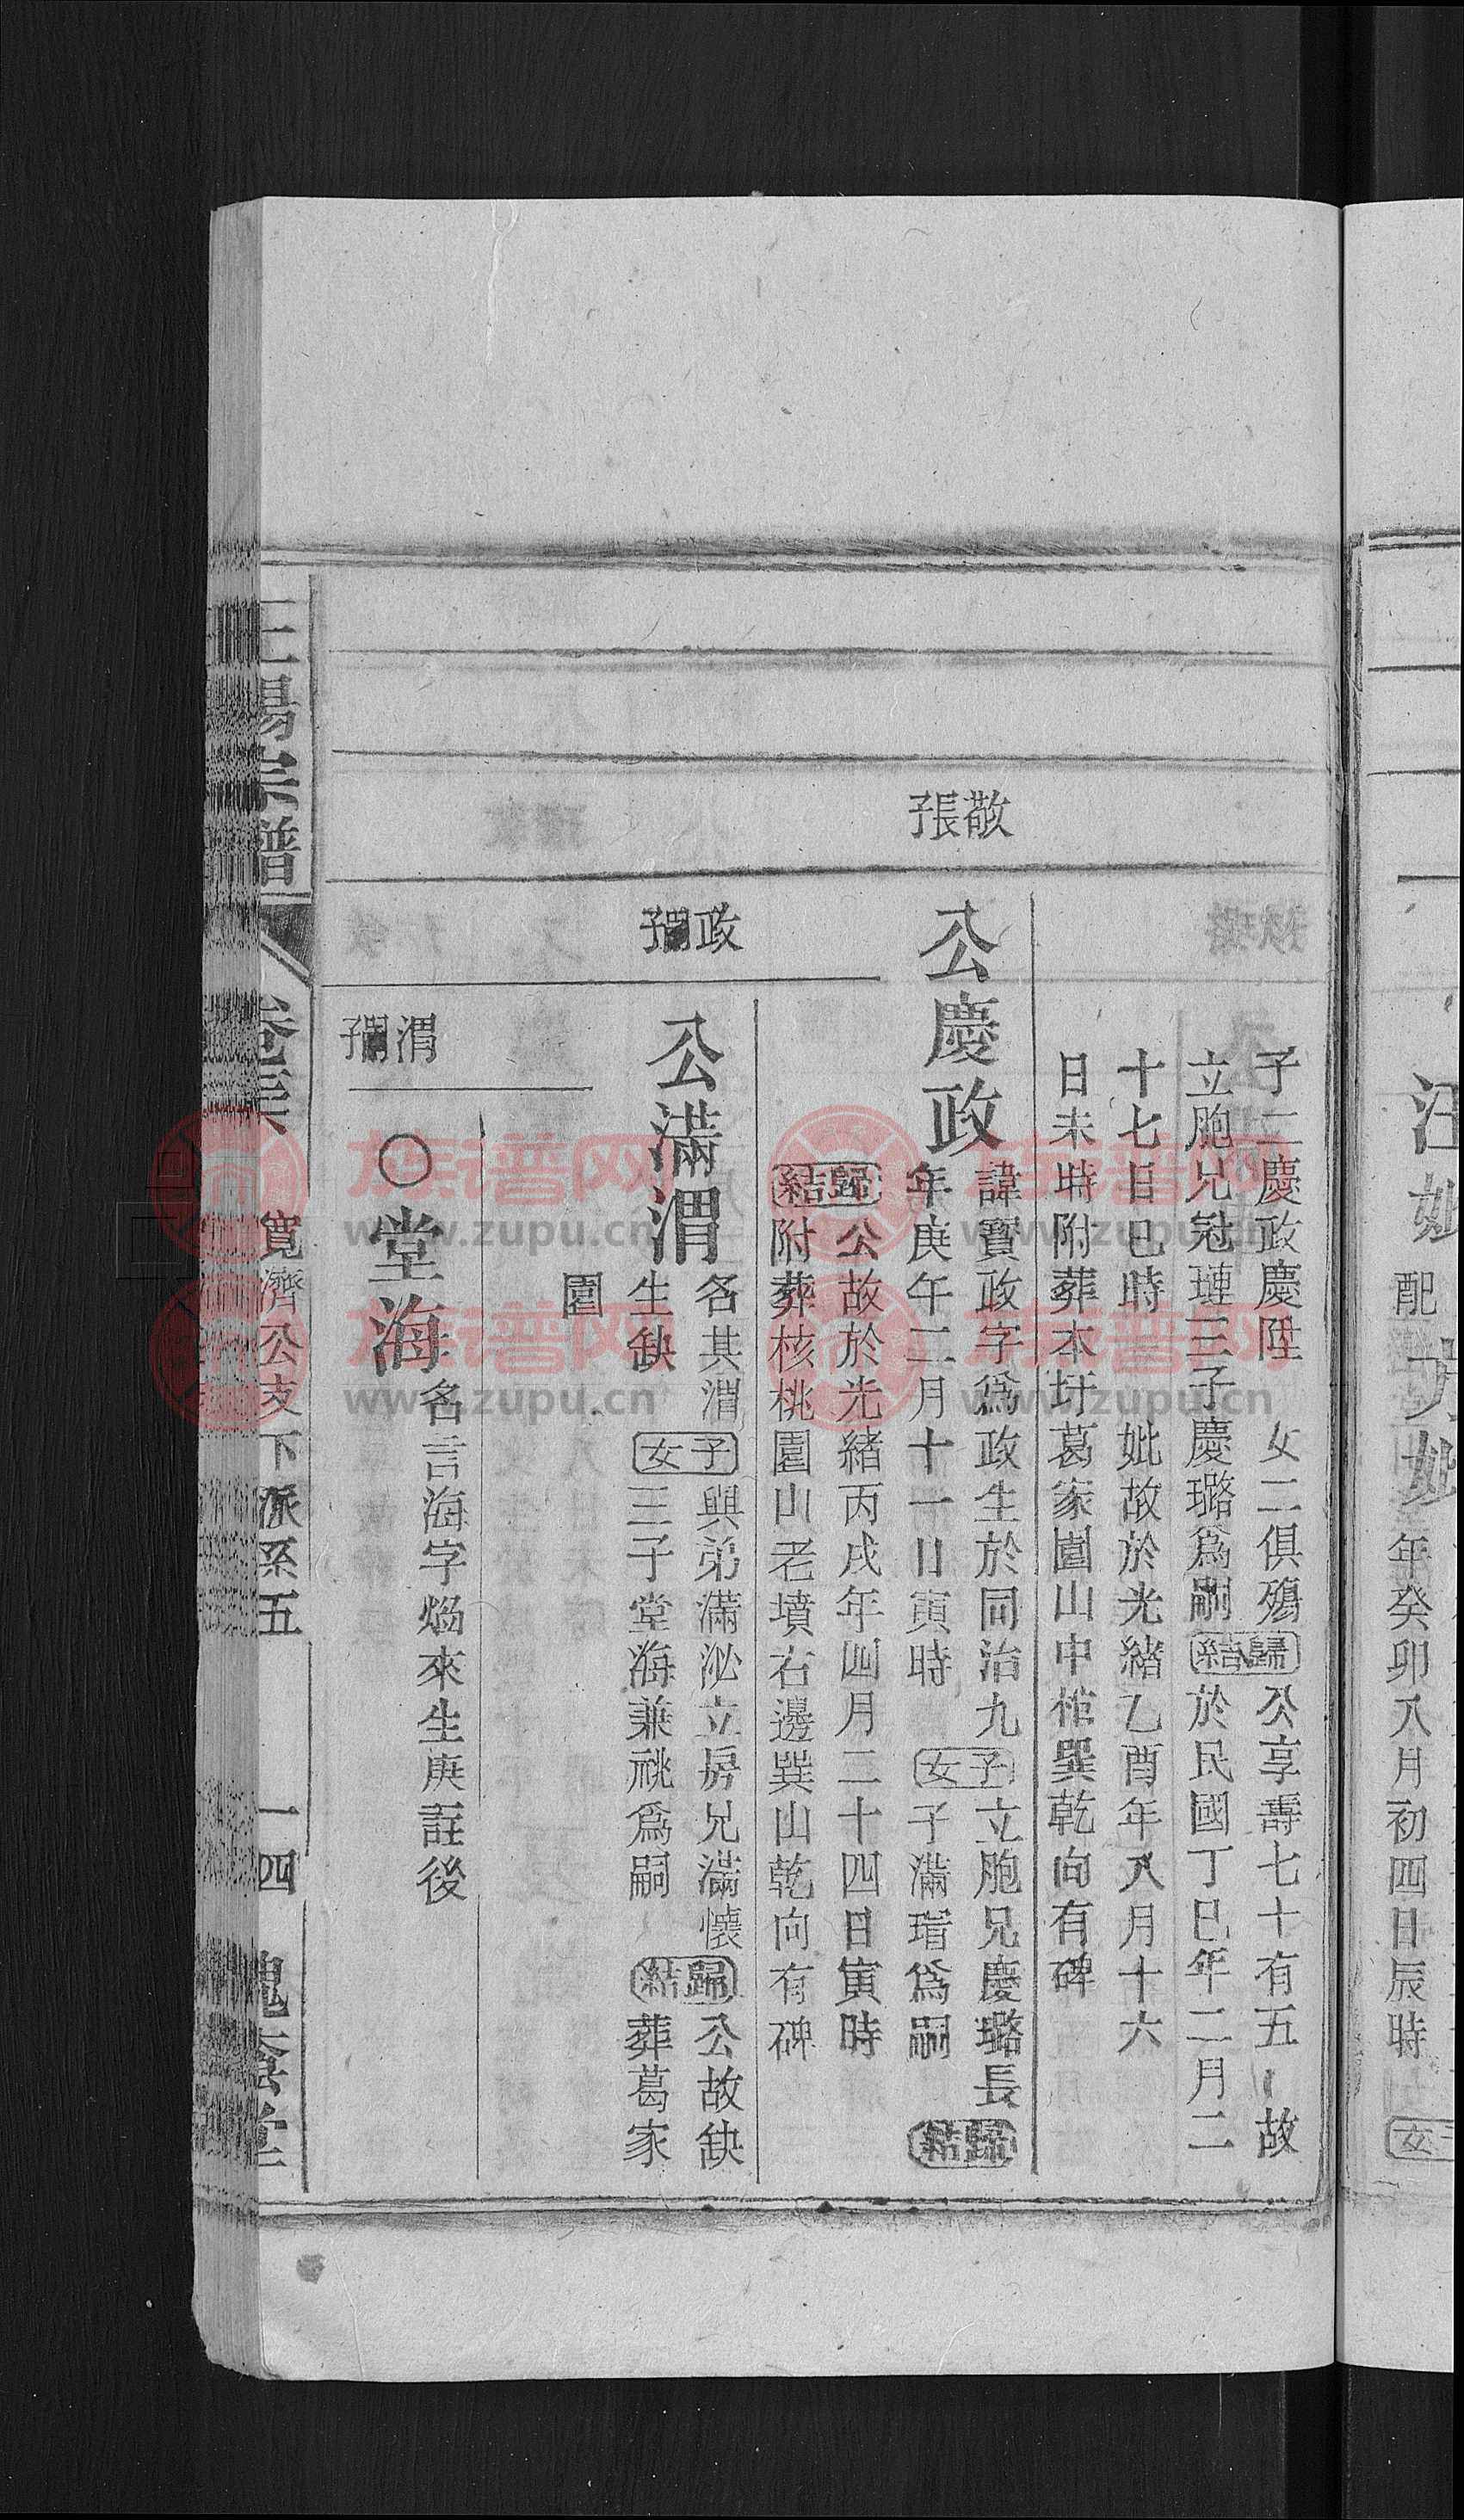 子二慶政慶陞　女二俱殤　歸結　公享壽七十有五　故
立胞兄冠璉三子慶璐爲嗣　於民國丁巳年二月二
十七日巳時　妣故於光緒乙酉年八月十六
日未時附葬本圩葛家園山中棺巽乾向有碑
敬張
公慶政
諱寳政字爲政生於同治九
年庚午二月十一日寅時
子女
立胞兄慶璐長
子滿瑨爲嗣
歸結
公故於光緒丙戌年四月二十四日寅時
附葬核桃園山老墳右邊巽山乾向有碑
政
公滿渭
名其渭
生缺
子女
與弟滿泌立房兄滿懷
三子堂海兼祧爲嗣
歸結
公故缺
葬葛家
園
渭
〇堂海
名言海字煬來生庚註後
宗譜
寬濟公支下派系五
一四
堂
配
年癸卯八月初四日辰時
族谱网
www.zupu.cn
族谱网
www.zupu.cn
族谱网
www.zupu.cn
族谱网
www.zupu.cn